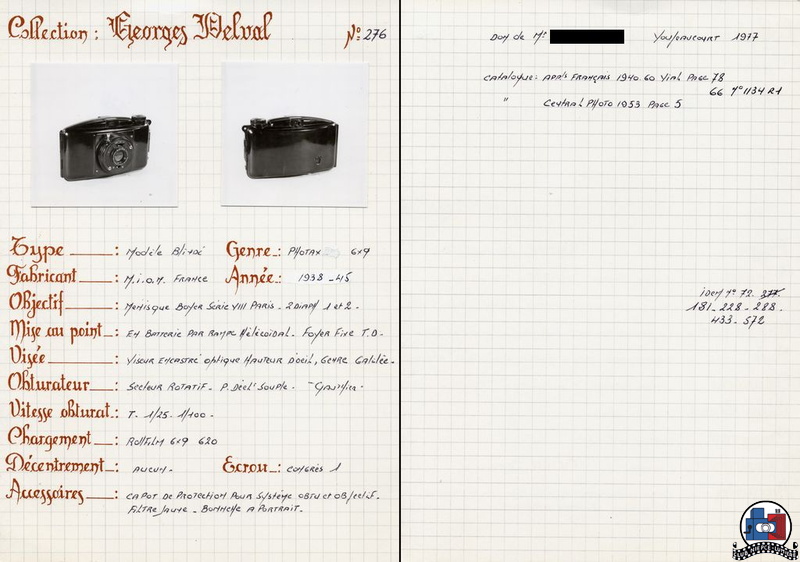 Collection : Georges Delval
N° 276
Type : Modèle Blindé Genre : PHOTAX 6x9
Fabricant : M.I.O.M. FRANCE Année : 1938 - 45
Objectif : Ménisque Boyer Série VIII Paris - 2 Diaph 1 et 2 -
Mise au point : EN BATTERIE PAR RAMPE Hélicoïdal - Foyer Fixe T.D -
Visée : Viseur Encastré optique Hauteur D'oeil, GENRE Galilée -
Obturateur : Secteur Rotatif - P. Décl' Souple -
Vitesse obturat : T - 1/25 - 1/100 -
Chargement : Rollfilm 6x9 620
Décentrement : AUCUN - Ecrou : CONGRÈS 1
Accessoires : CAPOT DE PROTECTION POUR SYSTÈME OBTU et OBJECTIF -
Filtre Jaune - BONNETTE A PORTRAIT -
Don de Mr 1977
catalogue : APP'ls FRANÇAIS 1940-60 Vial PAGE 78
66 N° 1134 R1
" Central PHOTO 1953 PAGE 5
idem N° 72 - 277
181 - 228 - 288 -
433 - 572